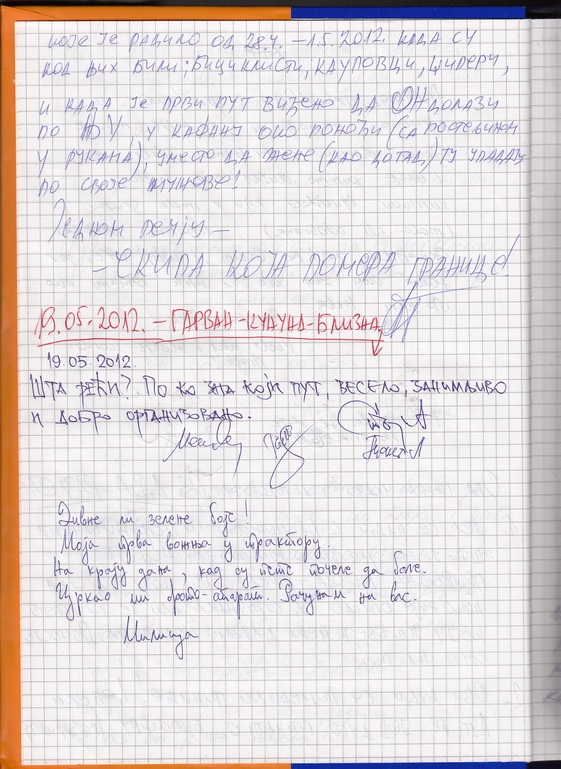 које је радило од 28.4. – 1.5.2012. када су
код њих били; бициклисти, кауловци, циљери,
и када је први пут виђено да ОН долази
по ЊУ, у кафану око поноћи (са постевином
у рукама), уместо да жене (као дотад) ту упадају
по своје мужеве!
Једном речју –
– ЕКИПА КОЈА ПОМЕРА ГРАНИЦЕ!
19.05.2012. – ГАРВАН-КУДУНА-БЛИЗНА
19.05.2012.
Шта рећи? По ко зна који пут, весело, занимљиво
и добро организовано.
Дивне ли зелене боје!
Моја прва вожња у трактору.
На крају дана, кад су пете почеле да боле.
Цркао ми фото-апарат. Рачунам на вас.
Милица